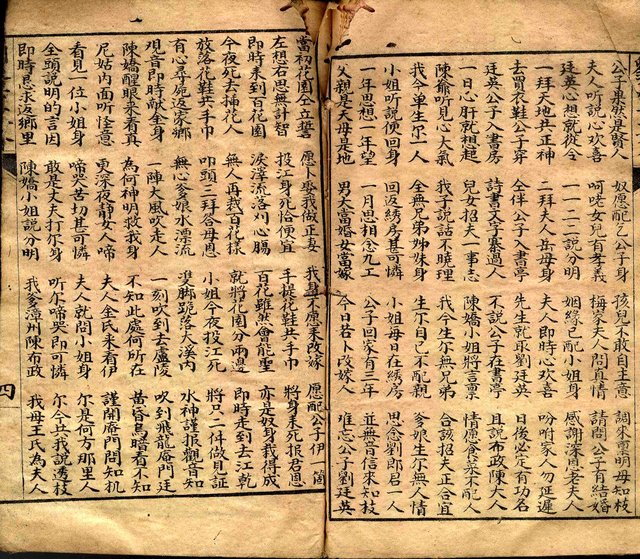 公子東然是賢人 奴愿配乙公子身 孩兒不敢自主意
夫人听說心欢喜 呵咾女兒有孝義 梅香夫人問真情 請問公子有結婚
廷英心想就從今 一一二二說分明 姻緣已配小姐身 感謝深恩老夫人
一拜天地共正神 二拜夫人岳母身 夫人即時心欢喜 吩咐家人勿延遲
去買衣鞋公子穿 全伴公子入書亭 先生就取劉廷英 日後必定有功名
廷英公子入書房 詩書文字賽過人 不說公子在書亭 且說布政陳大人
一日心肝就想起 兒女招夫一事志 陳嬌小姐將言禀 情愿食菜不配人
陳爺听見心大氣 我子說話不曉理 我今生尔無兄弟 合該招夫正合宜
我今單生尔一人 全無兄弟姊妹身 生下自己不配親 爹娘生尔無人情
小姐听說便回身 回返綉房甚可憐 小姐每日在綉房 思念劉郎君一人
一年思想一年望 一月思相念九工 公子回家有三年 並無音信來知我
父親是天母是地 男大當婚女當嫁 今日若卜改嫁人 难忘公子劉廷英
當初花園仝立誓 愿卜娶我做正妻 我身不愿來改嫁 愿配公子伊一箇
左想右思無計智 投江身死恰便宜 手提花鞋共手巾 將身來死报君恩
即時來到百花園 淚滓流落刈心腸 百花雖然會能聖 亦是奴身栽得成
今夜死去掃花人 無人再栽百花採 就將花園分兩邊 即時走到去江乾
放落花鞋共手巾 叩頭三拜谷母恩 小姐今夜投江死 將只二件做見証
有心尋死返家鄉 無心爹娘水漂流 準脚跪落大溪内 水神謹报觀音知
观音即時献全身 一陣大風吹走人 一刻吹到去盧陵 吹到飛龍庵門廷
陳嬌醒眼來看真 為何神明救我身 不知此處何所在 黄昏烏暗看不知
尼姑内面听怪意 更深夜静女人啼 夫人金氏來看伊 謹開庵門問知机
看見一位小姐身 啼哭苦切甚可憐 夫人就問小姐身 尔是何方那里人
全頭說明的言因 敢是丈夫打尔身 听尔啼哭即可憐 尔今共我說透枝
即時恳求返鄉里 陳嬌小姐說分明 我爹漳州陳布政 我母王氏為夫人
四